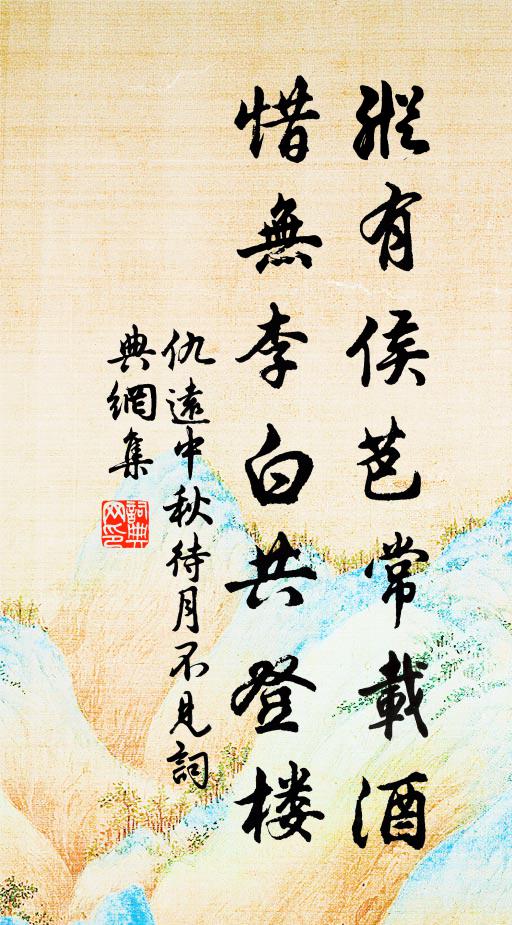 縱有侯芭常載酒
惜無李白共登楼
仇遠中秋待月不見詞
典網集
詞典網印